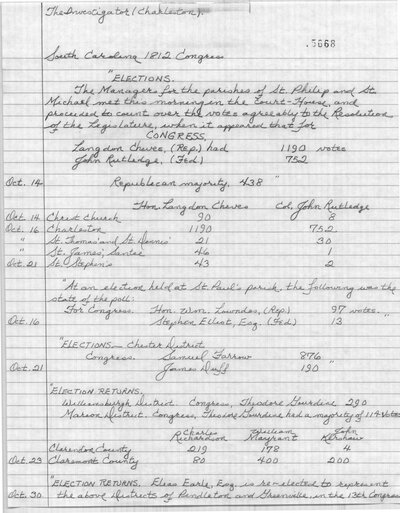 The Investigator (Charleston).
.5668
South Carolina 1812 Congress
"ELECTIONS.
The Managers for the parishes of St. Philip and St.
Michael met this morning in the Court-House, and
proceeded to count over the votes agreeably to the Resolution
of the Legislature, when it appeared that for
CONGRESS,
Langdon Cheves, (Rep.) had 1190 votes
John Rutledge, (Fed) 752
Oct. 14 Republican majority, 438 "
Hon. Langdon Cheves Col. John Rutledge
Oct. 14 Christ Church 90 8
Oct. 16 Charleston 1190 752
" St. Thomas' and St. Dennis' 21 30
" St. James', Santee 46 1
Oct. 21 St. Stephen's 43 2
"At an election held at St. Paul's parish, the following was the
state of the poll:
For Congress. Hon. Wm. Lowndes, (Rep.) 97 votes.
Oct. 16 Stephen Elliot, Esq. (Fed) 13 "
"ELECTIONS.— Chester District
Congress. Samuel Farrow 876
Oct. 21 James Duff 190 "
"ELECTION RETURNS.
Williamsburgh District. Congress, Theodore Gourdine 290
Marion District. Congress, Theodore Gourdine had a majority of 114 votes
Charles Richardson William Mayrant John Kershaw
Clarendon County 219 178 4
Oct. 23 Claremont County 80 400 200
"ELECTION RETURNS. Elias Earle, Esq. is re-elected to represent
Oct. 30 the above Districts of Pendleton and Greenville, in the 13th Congress